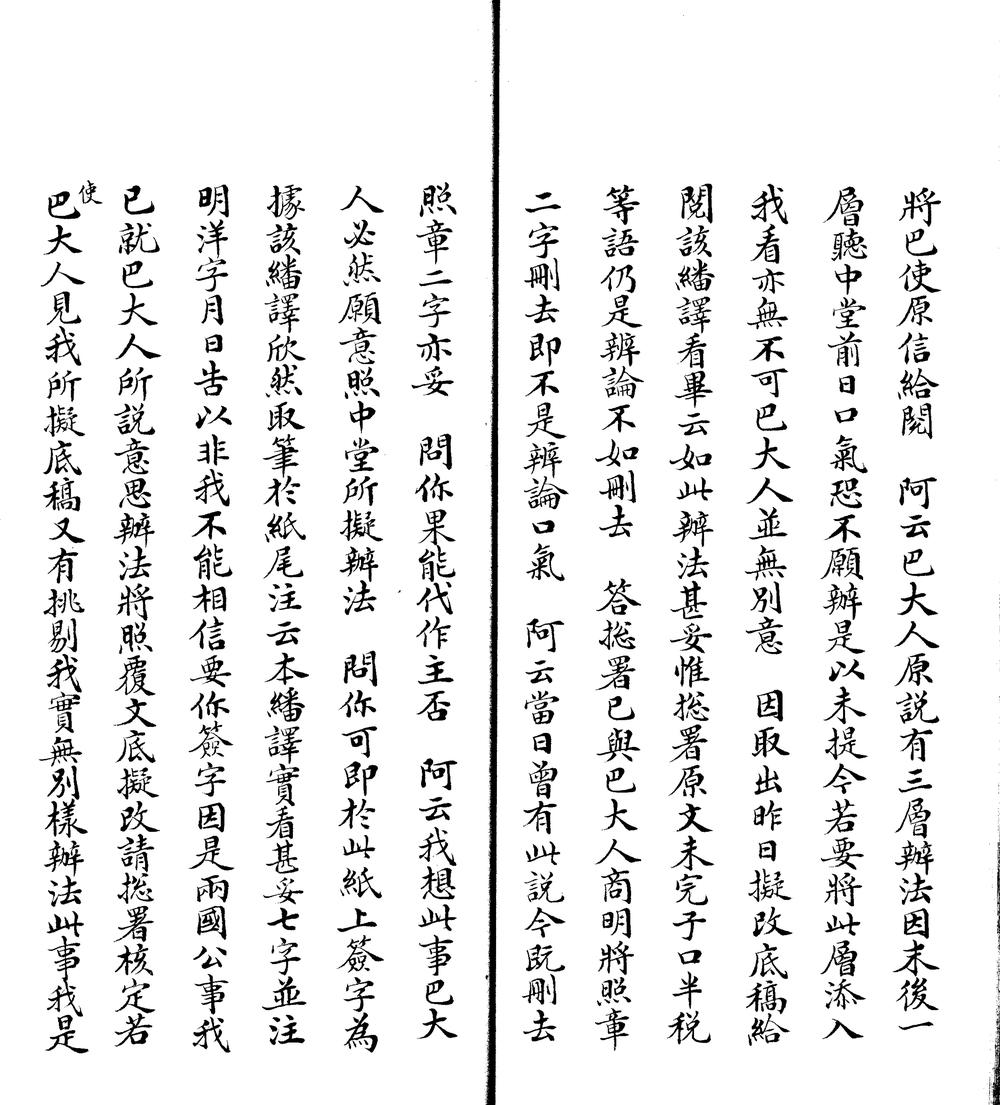 將巴使原信給閱　阿云巴大人原説有三層辦法因末後一
層聽中堂前日口氣恐不願辦是以未提今若要將此層添入
我看亦無不可巴大人並無別意　因取出昨日擬改底稿給
閱該繙譯看畢云如此辦法甚妥惟揔署原文未完子口半税
等語仍是辨論不如刪去　答揔署已與巴大人商明將照章
二字刪去即不是辨論口氣　阿云當日曾有此説今既刪去
照章二字亦妥　問你果能代作主否　阿云我想此事巴大
人必然願意照中堂所擬辦法　問你可即於此紙上簽字為
據該繙譯欣然取筆於紙尾注云本繙譯實看甚妥七字並注
明洋字月日告以非我不能相信要你簽字因是兩國公事我
已就巴大人所説意思辦法將照覆文底擬改請揔署核定若
使
巴大人見我所擬底稿又有挑剔我實無別樣辦法此事我是